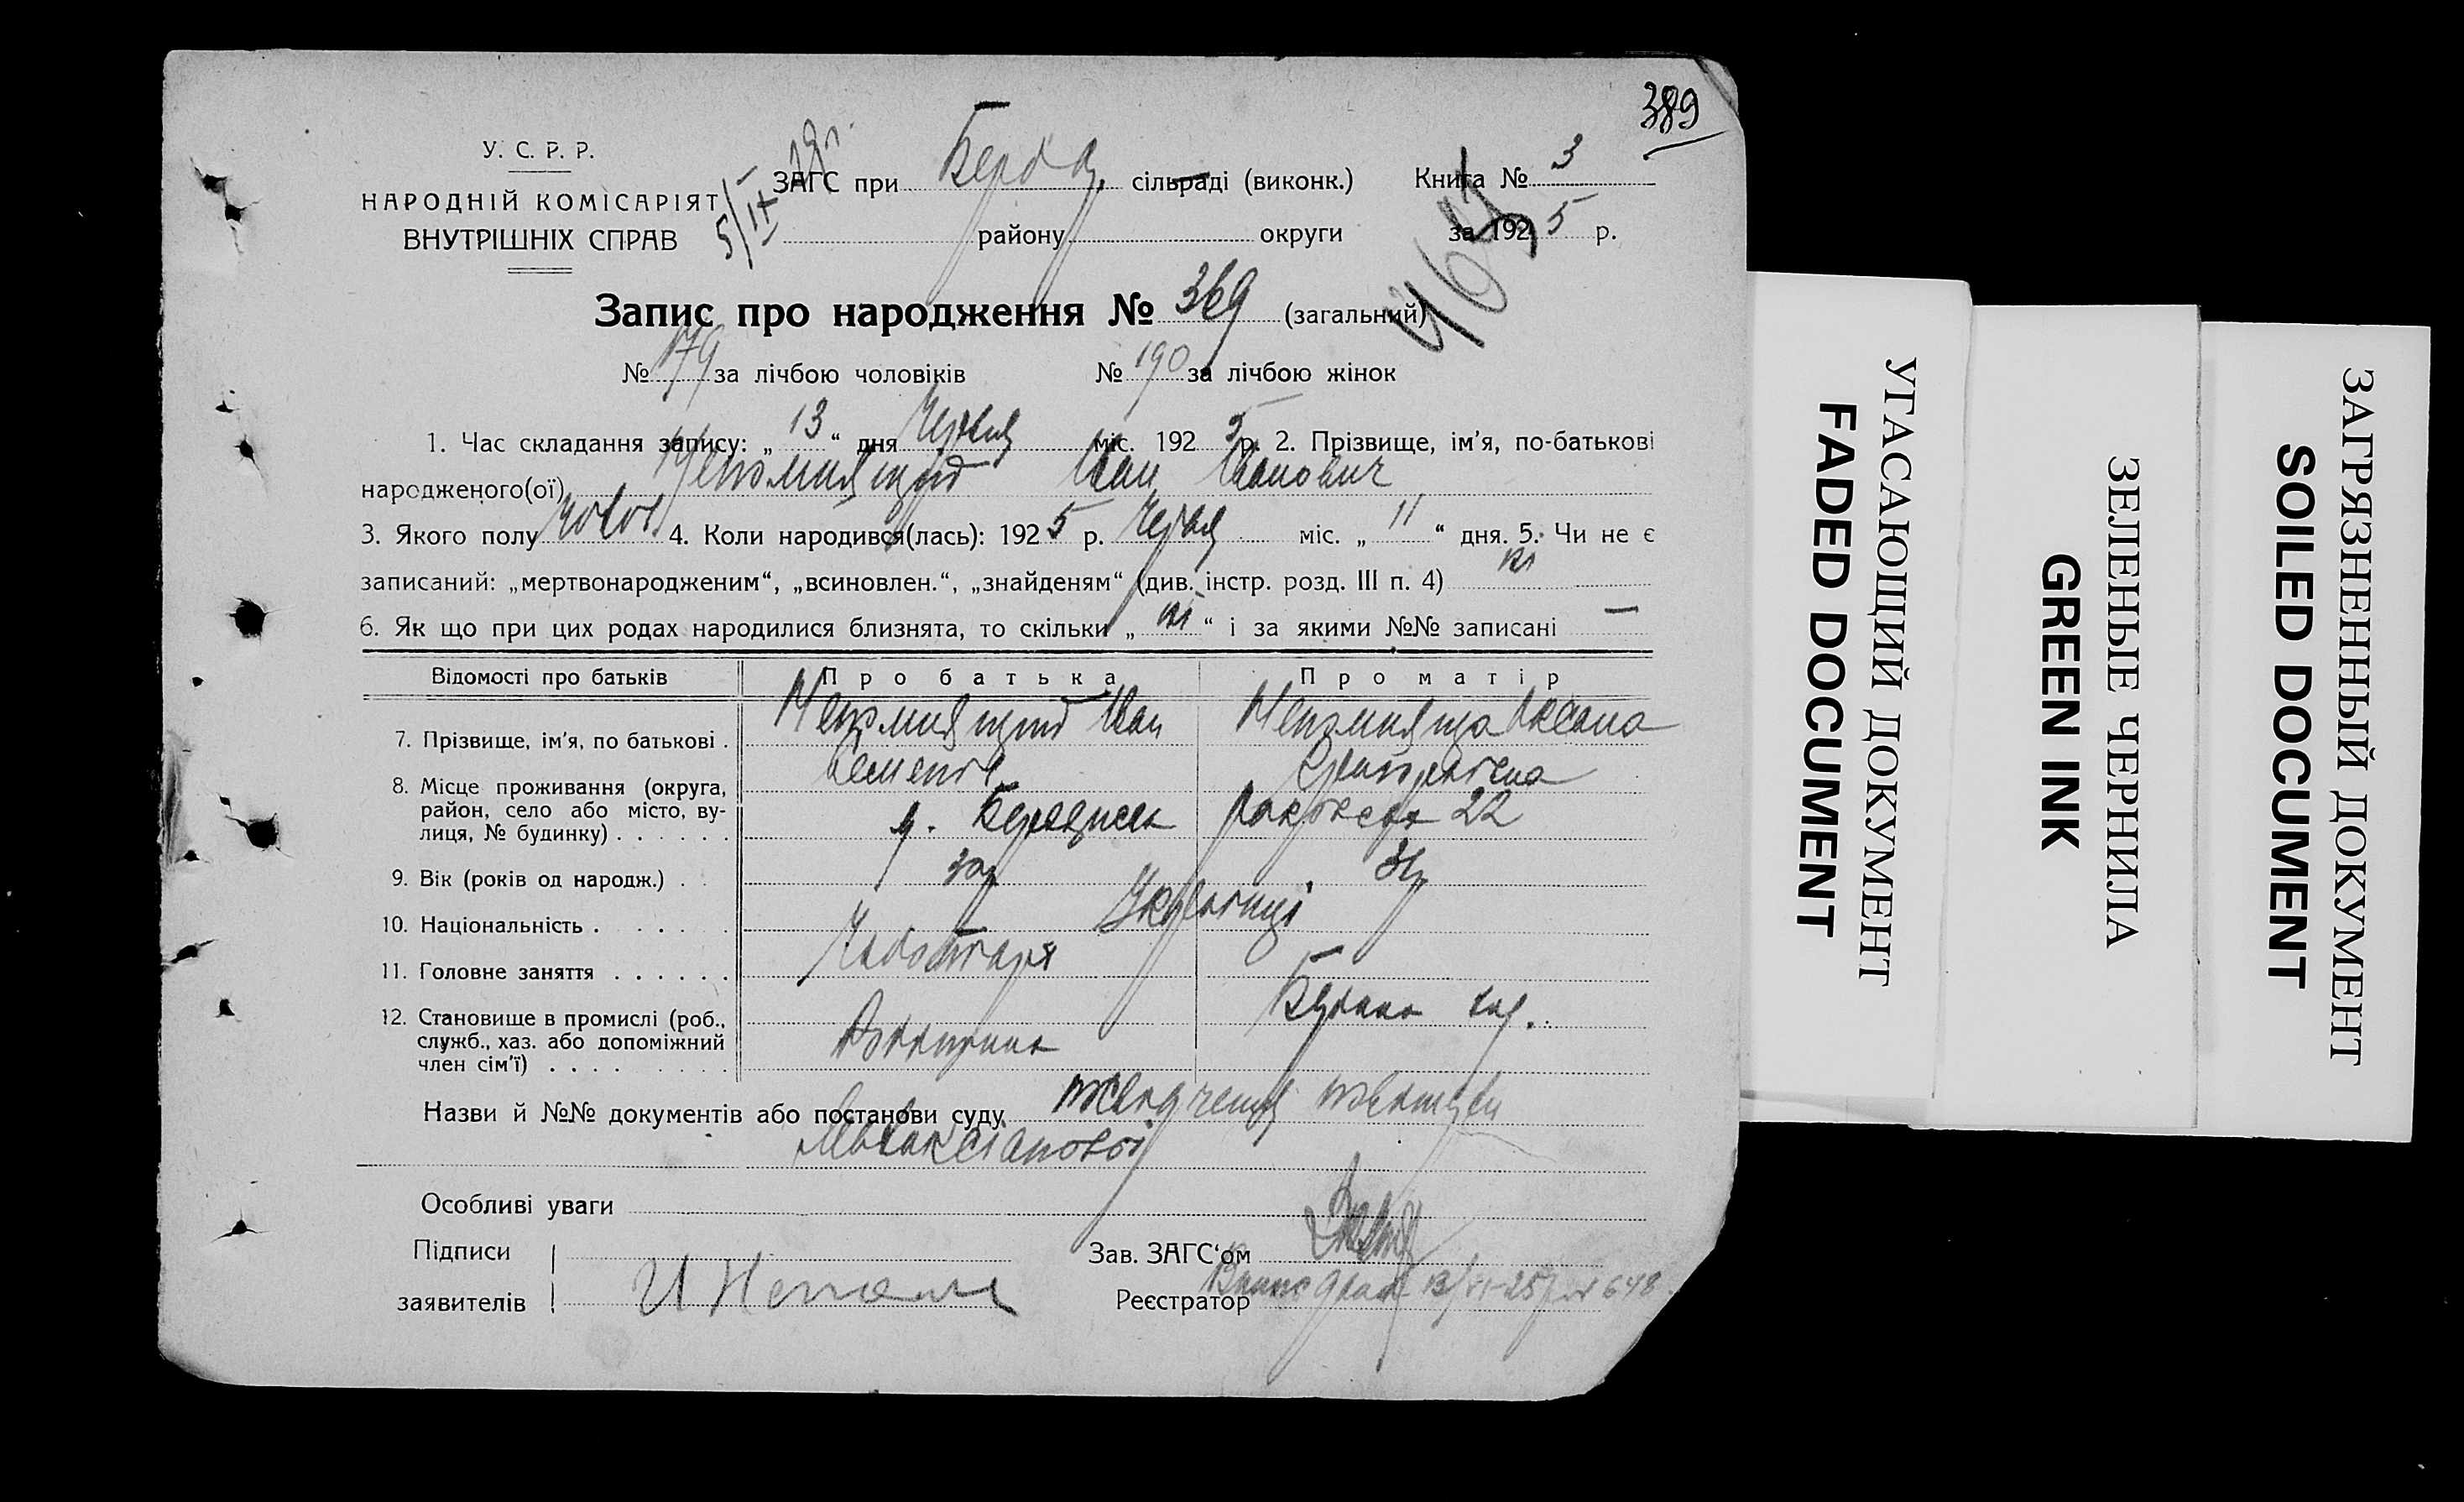 389
У. С. Р. Р.
НАРОДНІЙ КОМІСАРІЯТ
ВНУТРІШНІХ СПРАВ
5/IX
ЗАГС при сільраді (виконк.) Книга № 3
району округи за 1925 р.
Запис про народження № 369 (загальний)
№ 179 за лічбою чоловіків № 190 за лічбою жінок
1. Час складання запису: „ 13 “ дня Червня міс. 1925 р. 2. Прізвище, ім'я, по-батькові
народженого(ої) Непомнящий Іван Іванович
3. Якого полу чолов. 4. Коли народився(лась): 1925 р. Червня міс. „ 11 “ дня. 5. Чи не є
записаний: „мертвонародженим“, „всиновлен.“, „знайденям“ (див. інстр. розд. III п. 4) ні
6. Як що при цих родах народилися близнята, то скільки „ ні “ і за якими №№ записані —
Відомості про батьків Про батька Про матір
7. Прізвище, ім'я, по батькові . Непомнящий Іван Непомняща Оксана
Семенів
8. Місце проживання (округа,
район, село або місто, ву-
лиця, № будинку) . . . . . . 22
9. Вік (років од народж.) . .
10. Національність . . . . . Українці
11. Головне заняття . . . . . .
12. Становище в промислі (роб.,
служб., хаз. або допоміжний
член сім'ї) . . . . . . . .
Назви й №№ документів або постанови суду
Особливі уваги
Підписи
заявителів И Непом
Зав. ЗАГС‘ом
Реєстратор
УГАСАЮЩИЙ ДОКУМЕНТ
FADED DOCUMENT
ЗЕЛЕНЫЕ ЧЕРНИЛА
GREEN INK
ЗАГРЯЗНЕННЫЙ ДОКУМЕНТ
SOILED DOCUMENT